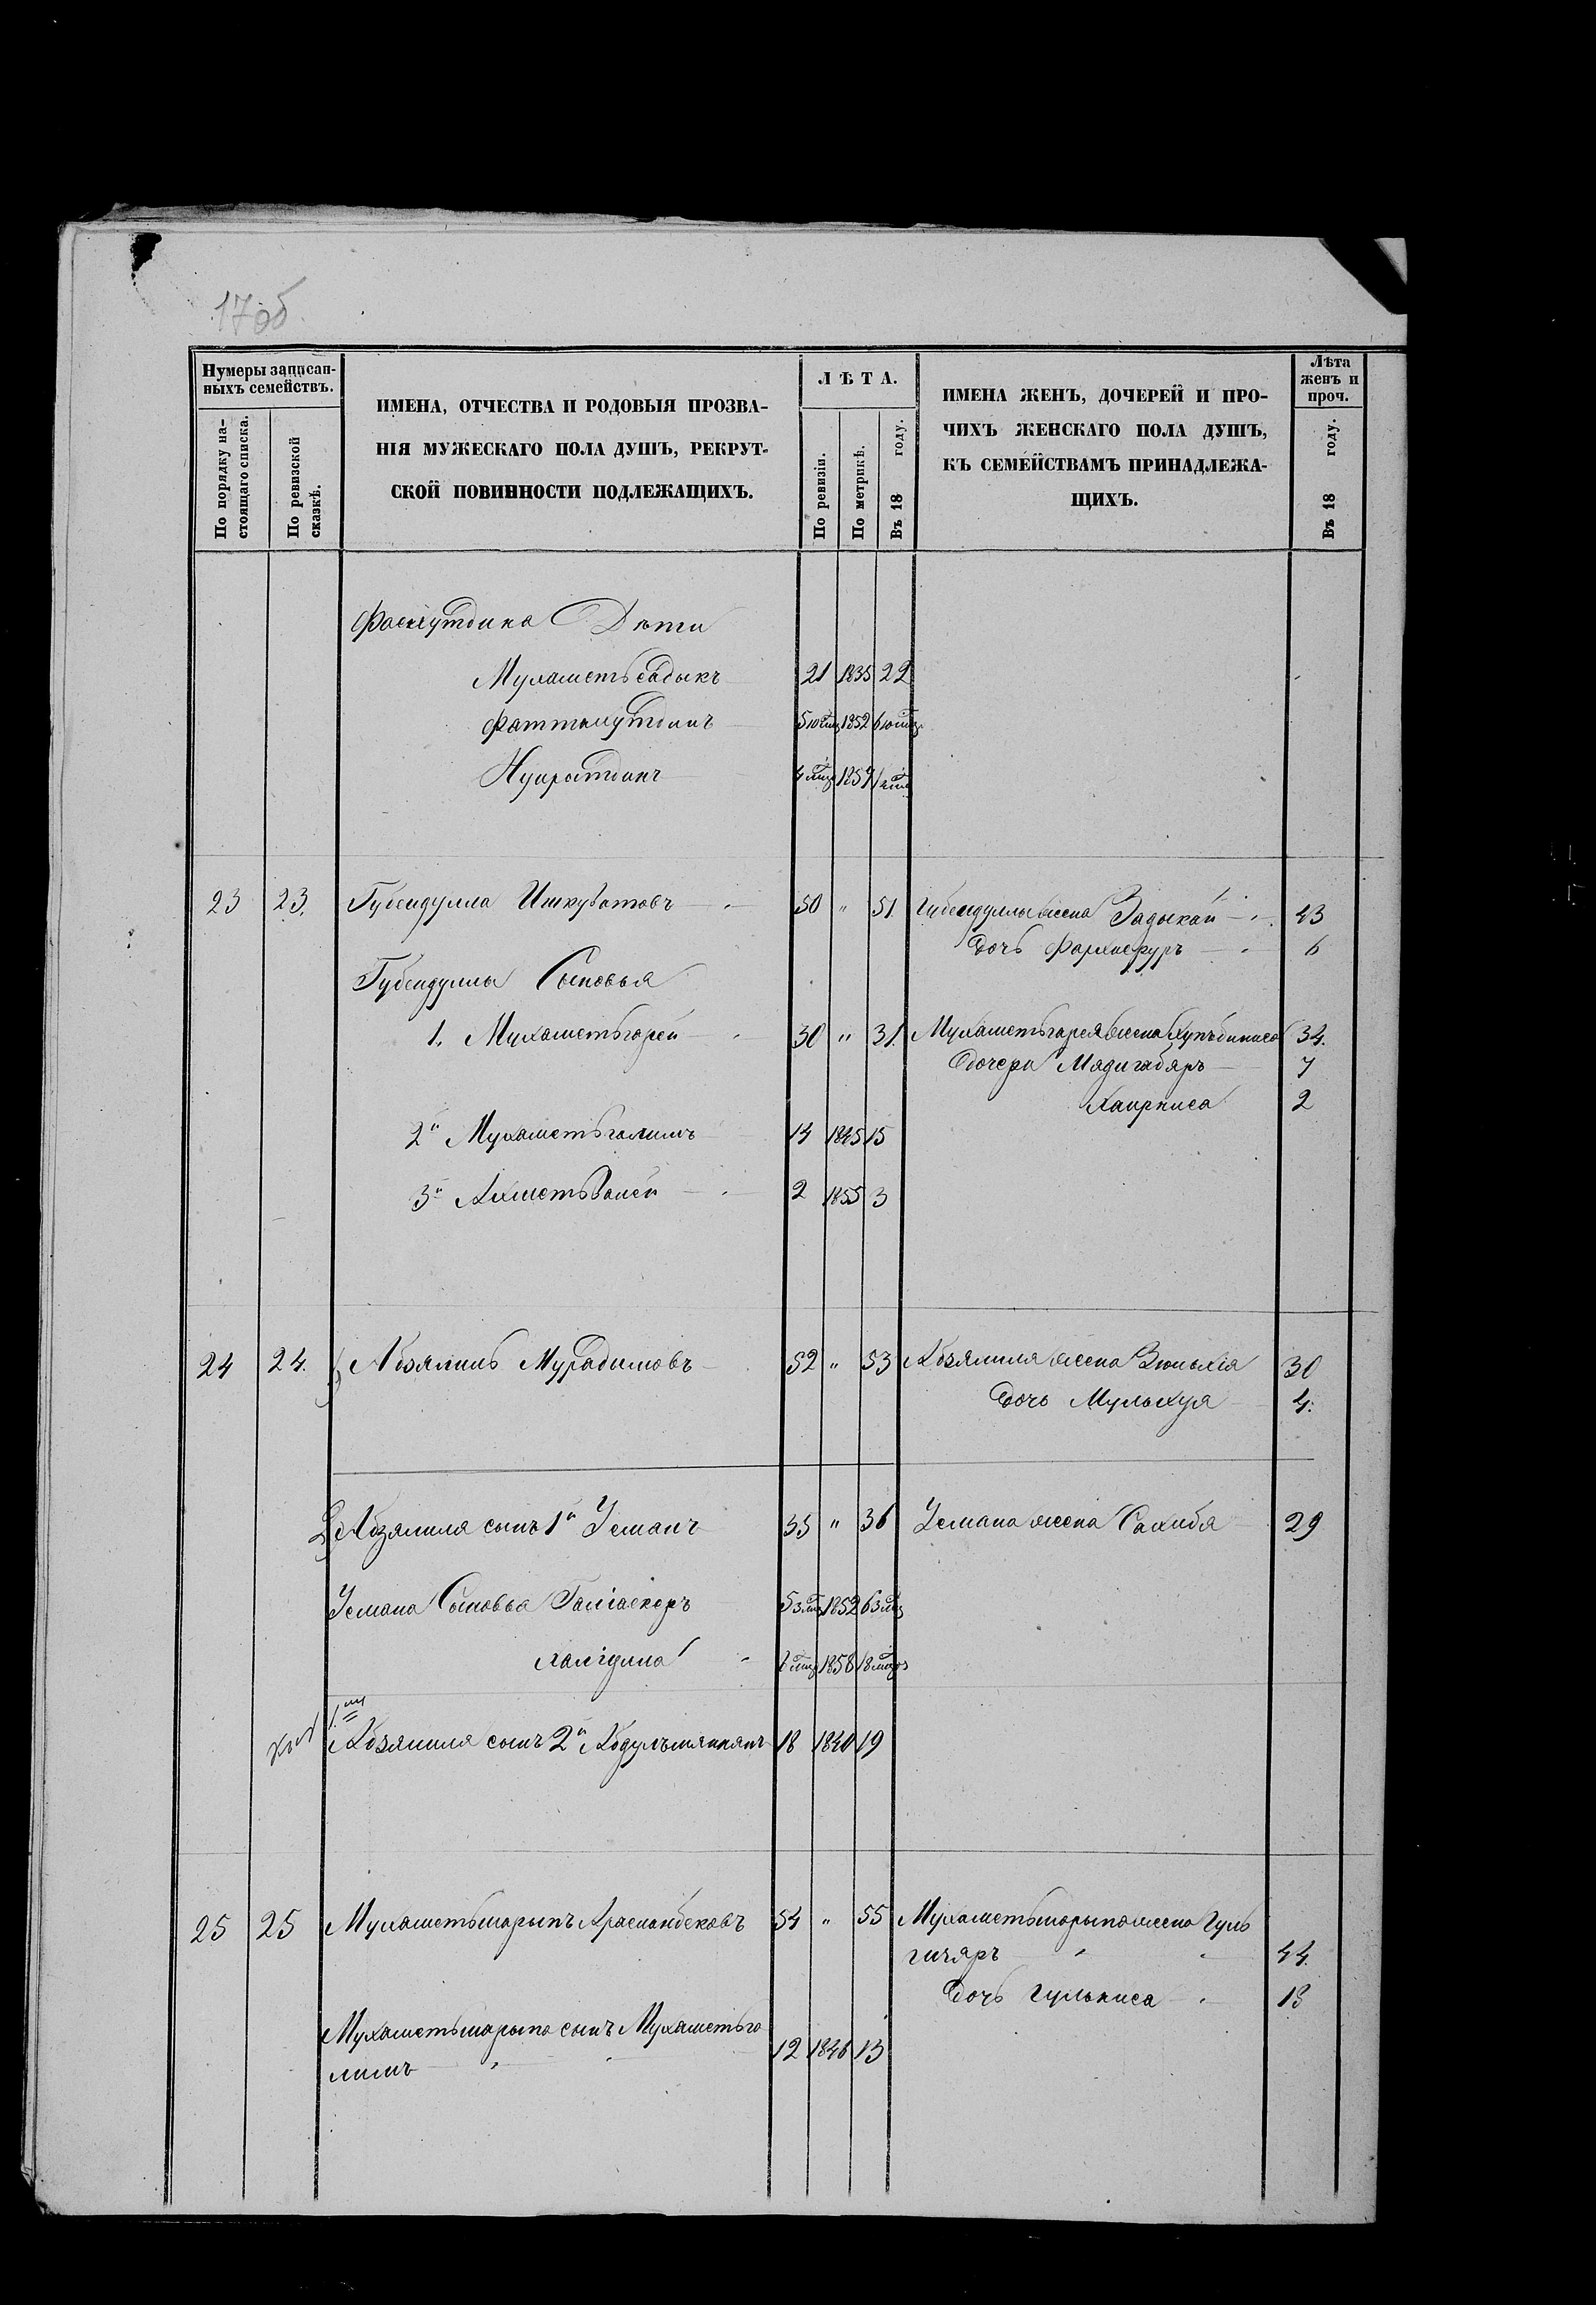 17об
Нумеры записан-
ныхъ семействъ.
По порядку на-
стоящаго списка.
По ревизской
сказкѣ.
ИМЕНА, ОТЧЕСТВА И РОДОВЫЯ ПРОЗВА-
НІЯ МУЖЕСКАГО ПОЛА ДУШЪ, РЕКРУТ-
СКОЙ ПОВИННОСТИ ПОДЛЕЖАЩИХЪ.
ЛѢТА.
По ревизіи.
По метрикѣ.
Въ 18 году.
ИМЕНА ЖЕНЪ, ДОЧЕРЕЙ И ПРО-
ЧИХЪ ЖЕНСКАГО ПОЛА ДУШЪ,
КЪ СЕМЕЙСТВАМЪ ПРИНАДЛЕЖА-
ЩИХЪ.
Лѣта
женъ и
проч.
Въ 18 году.
Фасхутдина Дѣти
Мухаметьсадыкъ 21 1835 22
1852
23 23. Губейдулла Ишкуватовъ 50 " 51. Губейдуллы жена Задыкай 43
дочь 6
Губейдуллы Сыновья
1. Мухаметьгарей 30 " 31. Мухаметьгарея жена 34.
дочери 7
Хаирниса 2
2й Мухаметьгалимъ 14 1845 15
3й Ахметьвалей 2 1855 3
24 24. Абзялиль Мурадимовъ 52 " 53 Абзялиля жена 30
дочь Мульхуя 4.
Абзялиля сынъ 1й Усманъ 35 " 36 Усмана жена Сахибя 29
Усмана Сыновья Галіаскаръ 1852
1858
Абзялиля сынъ 2й Абдулъмяннянъ 18 1840 19
25 25 Мухаметьшарыпъ Арасланбековъ 54 " 55 Мухаметьшарыпа жена Гуль
гичяръ 44.
дочь Гульниса 13
Мухаметьшарыпа сынъ Мухаметьга
лимъ 12 1846 13